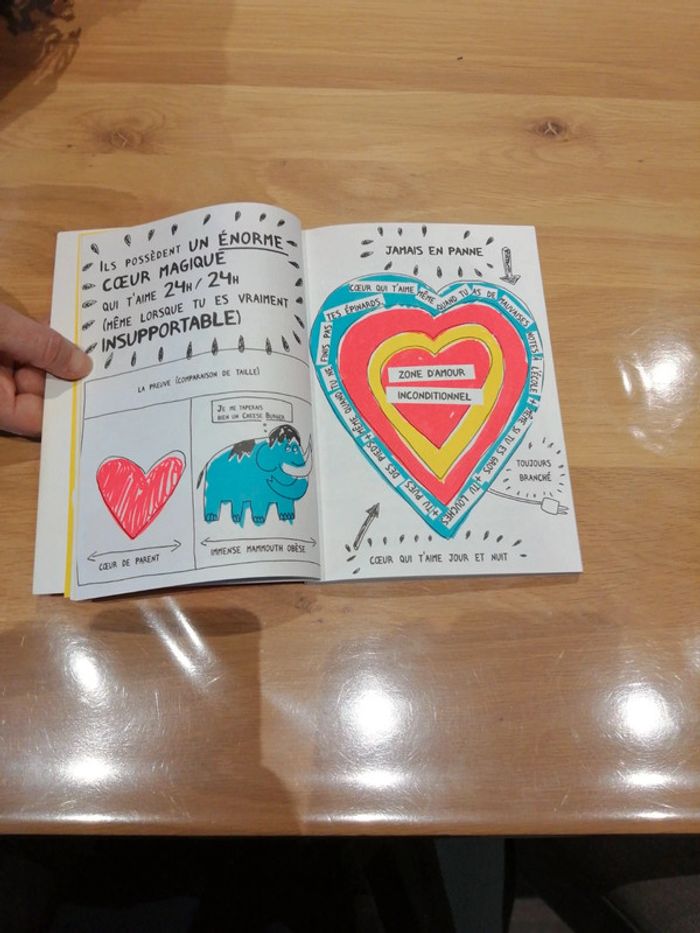 ILS POSSÈDENT UN ÉNORME
CŒUR MAGIQUE
QUI T'AIME 24H/24H
(MÊME LORSQUE TU ES VRAIMENT
INSUPPORTABLE)
LA PREUVE (COMPARAISON DE TAILLE)
JE ME TAPERAIS
BIEN UN CHEESE BURGER
CŒUR DE PARENT
IMMENSE MAMMOUTH OBÈSE
JAMAIS EN PANNE
CŒUR QUI T'AIME MÊME QUAND TU AS DE MAUVAISES NOTES À L'ÉCOLE + MÊME SI TU ES GROS + TU LOUCHES + TU PUES DES PIEDS + MÊME QUAND TU NE FINIS PAS TES ÉPINARDS...
ZONE D'AMOUR
INCONDITIONNEL
TOUJOURS
BRANCHÉ
CŒUR QUI T'AIME JOUR ET NUIT